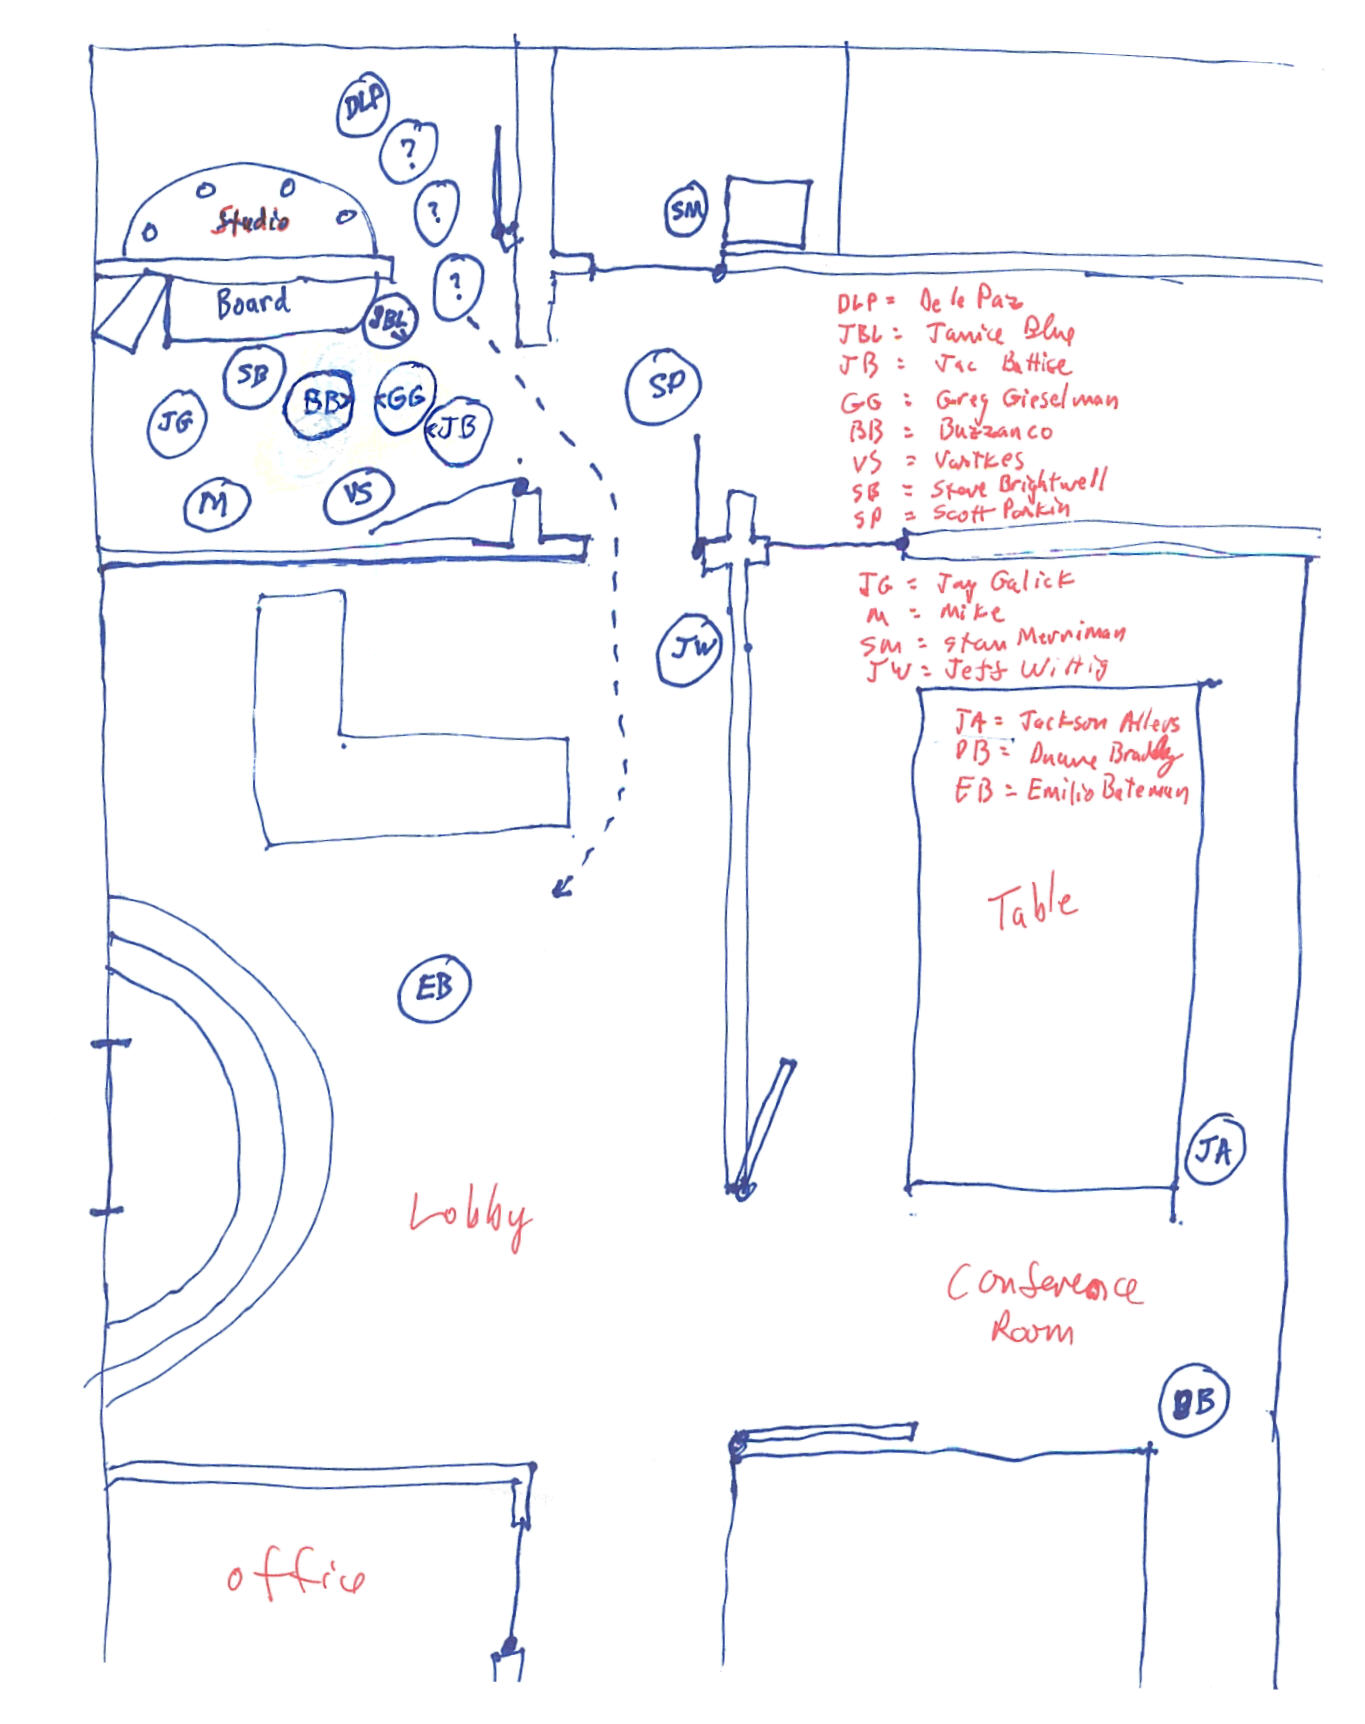 DLP
?
?
SM
Studio
?
Board
JBL
DLP = De le Paz
JBL = Janice Blue
JB = Jac Battise
GG = Greg Gieselman
BB = Buzzanco
VS = Vartkes
SB = Steve Brightwell
SP = Scott Parkin
SB
BB
GG
SP
JG
JB
M
VS
JG = Jay Galick
M = Mike
SM = Stan Merriman
JW = Jeff Wittig
JW
JA = Jackson Allers
DB = Duane Bradley
EB = Emilio Bateman
Table
EB
JA
Lobby
Conference
Room
DB
office